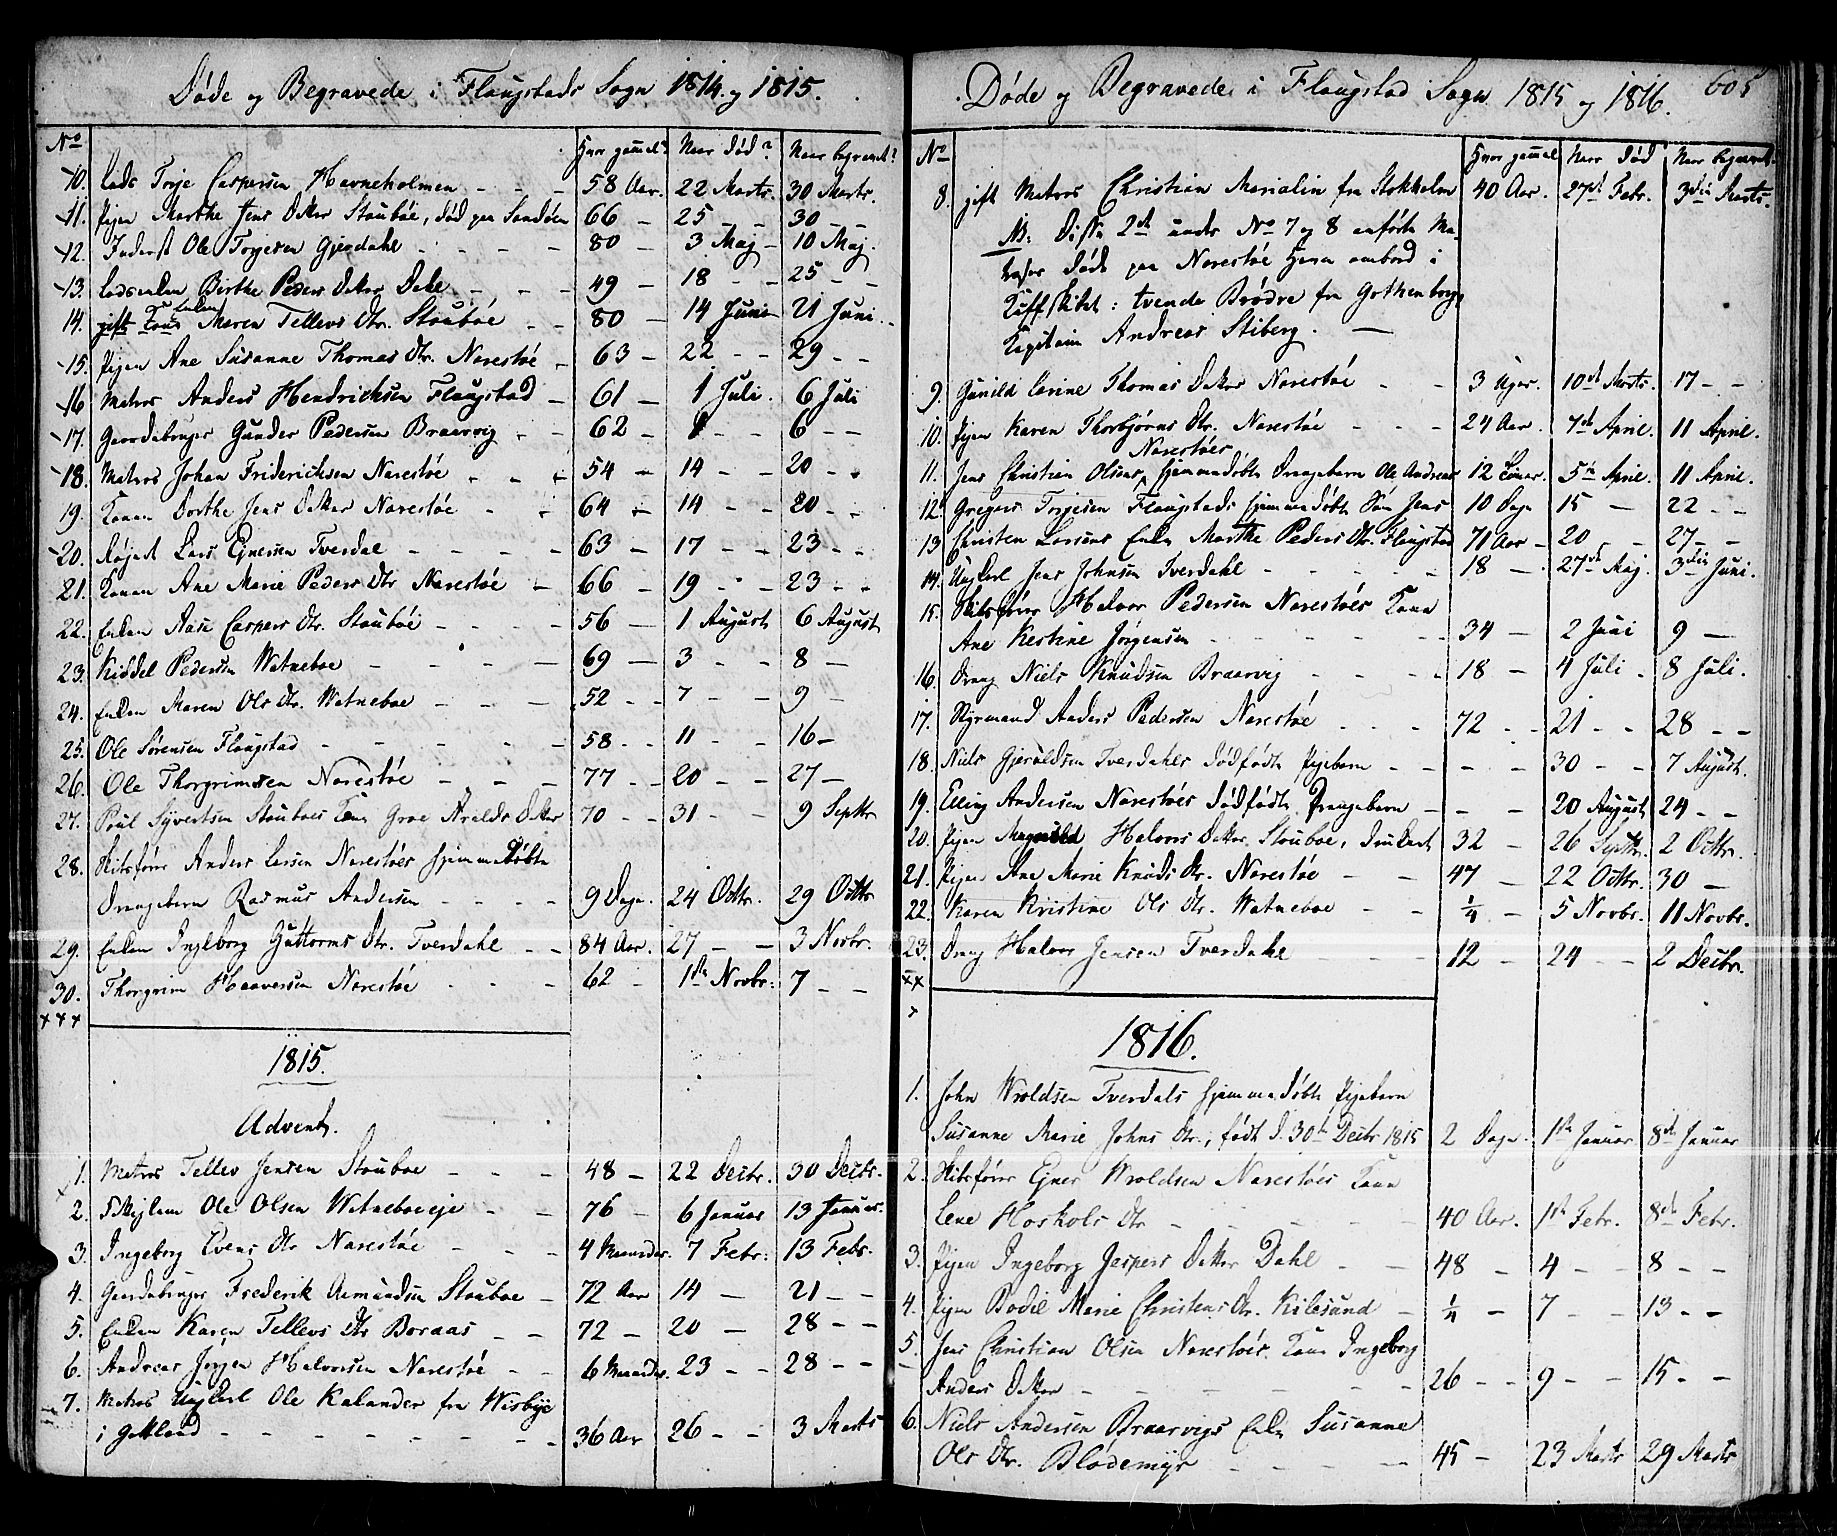 Døde og Begravede i Flaugstads Sogn 1814 og 1815.
No Hvor gammel? Naar død? Naar begravet?
10. Lods Torje Caspersen Havneholmen - - - 58 Aar. 22 Marts. 30 Marts.
11. Pigen Marthe Jens Datter Stoubøe, død paa Sandøen 66 - 25 - - 30 - -
12. Inderst Ole Torgersen Gjerdahl - - - 80 - 3 Maj - 10 Maj.
13. Lodsenken Birthe Peders Datter Dahl - - - 49 - 18 - - 25 - -
14. Enken Maren Tellevs Dtr. Stoubøe - - 80 - 14 Juni 21 Juni
15. Pigen Ane Susanne Thomas Dtr. Narestøe - 63 - 22 - - 29 - -
16 Matros Anders Hendrichsen Flaugstad - 61 - 1 Juli. 6 Juli
17. Gaardebruger Gunder Pedersen Braarvig - - 62 - 1 - - 6 - -
18. Matros Johan Friderichsen Narestøe - - - 54 - 14 - - 20 - -
19. Konen Dorthe Jens Datter Narestøe - - 64 - 14 - - 20 - -
20. Lars Ejersen Tverdal - - - - 63 - 17 - - 23 - -
21. Konen Ane Marie Peders Dtr Narestøe - - 66 - 19 - - 23 - -
22. Enken Aase Caspers Dtr. Stoubøe - - - - 56 - 1 August 6 August
23. Kiddel Pedersen Watneboe - - - - 69 - 3 - - 8 -
24. Enken Maren Ols Dtr. Watneboe - - - 52 - - 7 - - 9 -
25. Ole Sørensen Flaugstad - - - - - 58 - - 11 - - 16 -
26. Ole Thorgrimsen Narestøe - - - 77 - - 20 - - 27 -
27. Poul Syvertsen Stouboes Kone Groe Aralds Datter 70 - - 31 - - 9 Septbr
28. Skibsfører Anders Larsen Narestøes hjemmedøbte
Drengebarn Rasmus Andersen - - - - 9 Dage. 24 Octbr. 29 Octbr
29. Enken Ingeborg Guttorms Dtr. Tverdahl - - 84 Aar. 27 - - 3 Novbr.
30. Thorgrim Haaversen Narestøe - - - 62 - 1ste Novbr. 7 - -
x x x
1815.
Advent.
1. Matros Tellev Jensen Stouboe - - - 48 - 22 Decbr. 30 Decbr.
2. Ole Olsen Watneboeeje - - 76 - 6 Januar 13 Januar.
3. Ingeborg Evens Dtr Narestøe - - - 4 Maaneder. 7 Febr. 13 Febr.
4. Gaardebruger Frederik Asmundsen Stouboe - 72 Aar 14 - 21 - -
5. Enken Karen Tellevs Dtr Boraas - - 72 - 20 - 28 - -
6. Andreas Jørgen Halvorsen Narestøe - - 6 Maaneder. 23 - - 28 - -
7. Matros Ungkarl Ole Kalander fra Wisbye
i Gotland - - - - - - - - 36 Aar 26 - - 3 Marts
Døde og Begravede i Flaugstad Sogn 1815 og 1816. 605
No Hvor gammel Naar død Naar begravet.
8. gift Matros Christian Marialin fra Stokholm 40 Aar. 27de Febr. 3die Marts.
NB: Disse 2de under No 7 og 8 anførte Ma-
troser døde paa Narestøe Havn ombord i
Kuffskibet: tvende Brødre fra Gothenborg,
Kapitain Andreas Stiberg. -
9. Gunild Serine Thomas Datter Narestøe - - 3 Uger. 10de Marts. 17 - -
10. Pigen Karen Thorbjørns Dtr. Narestøe - - - 24 Aar. 7de April. 11 April.
Narestøes
11. Jens Christian Olsens hjemmedøbte Drengebarn Ole Andreas 12 Timer. 5te April. 11 April.
12. Gregers Torjesen Flaugstads hjemmedøbte Søn Jens 10 Dage 15 - 22 - -
13 Christen Larsens Enke Marthe Peders Dtr. Flaugstad 71 Aar - 20 - - 27 - -
14. Ungkarl Jens Johnsen Tverdahl - - - - 18 - 27de Maj. 3die Juni.
15. Skibsfører Halvor Pedersen Narestøes Kone
Ane Kestine Jørgensen - - - - - 34 - 2 Juni 9 -
16. Dreng Niels Knudsen Braarvig - - - - 18 - 4 Juli - 8 Juli.
17. Styrmand Anders Pedersen Narestøe - - - 72 - - 21 - - 28 - -
18. Niels Gjeruldsen Tverdahls dødfødte Pigebarn - - - - 30 - - 7 August.
19. Elling Andersen Narestøes dødfødte Drengebarn - - - 20 August 24 - -
20. Pigen Halvors Datter Stouboe, 32 - 26 Septbr. 2 Octbr.
21. Pigen Ane Marie Knuds Dtr. Narestøe - - 47 - 22 Octbr. 30 -
22. Karen Kristine Ols Dtr. Watneboe - - 1/4 - 5 Novbr. 11 Novbr.
23. Dreng Halvor Jensen Tverdahl - - - 12 - 24 - - 2 Decbr.
x x
x
1816.
1. John Wroldsen Tverdals hjemmedøbte Pigebarn
Susanne Marie Johns Dtr., født d. 30te Decbr 1815 2 Dage. 1ste Januar 8de Januar
2. Skibsfører Ejner Wroldsen Narestøes Kone
Lene Hoskols Dtr - - - - - 40 Aar. 1ste Febr. 8de Febr.
3. Pigen Ingeborg Jespers Datter Dahl - - 48 - 4 - - 8 - -
4. Pigen Bodil Marie Christens Dtr. Kilesund - 1/4 - 7 - - 13 - -
5. Jens Christian Olsen Narestøes Kone Ingeborg
Anders Datter - - - - - - 26 - - 9 - - 15 - -
6. Niels Andersen Braarvigs Enke Susanne
Ols Dtr. Blødemyr - - - - 45 - 23 Marts 29 Marts